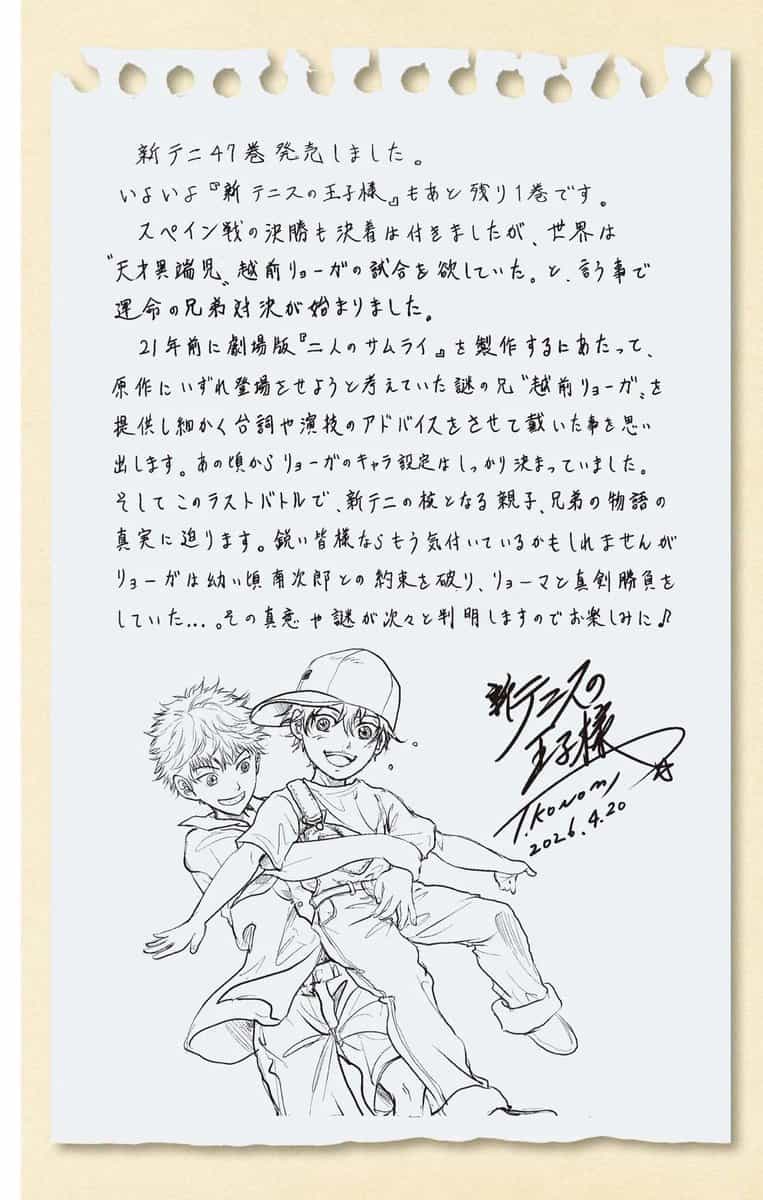 新テニ47巻発売しました。
いよいよ『新テニスの王子様』もあと残り1巻です。
スペイン戦の決勝も決着は付きましたが、世界は
〝天才異端児〟越前リョーガの試合を欲していた。と、言う事で
運命の兄弟対決が始まりました。
21年前に劇場版『二人のサムライ』を製作するにあたって、
原作にいずれ登場させようと考えていた謎の兄〝越前リョーガ〟を
提供し細かく台詞や演技のアドバイスをさせて戴いた事を思い
出します。あの頃からリョーガのキャラ設定はしっかり決まっていました。
そしてこのラストバトルで、新テニの核となる親子、兄弟の物語の
真実に迫ります。鋭い皆様ならもう気付いているかもしれませんが
リョーガは幼い頃南次郎との約束を破り、リョーマと真剣勝負を
していた...。その真意や謎が次々と判明しますのでお楽しみに♪
新テニスの
王子様
T.KONOMI
2026.4.20